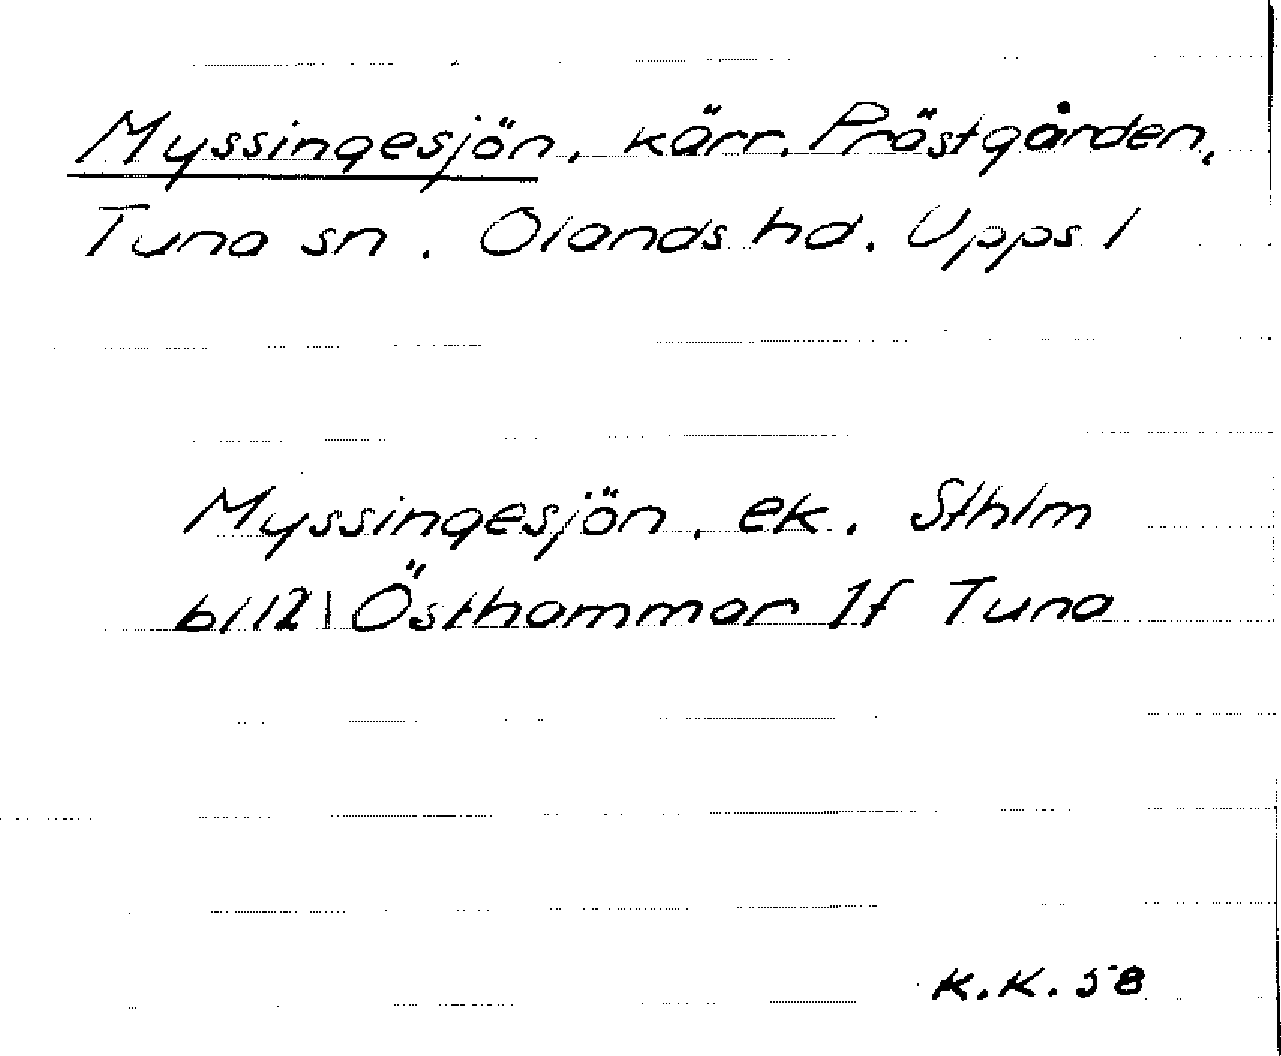 Myssingesjön, kärr. Prästgården,
Tuna sn. Olands hd. Upps l
Myssingesjön, ek. Sthlm
bl 121 Östhammar 1f Tuna
K.K. 58